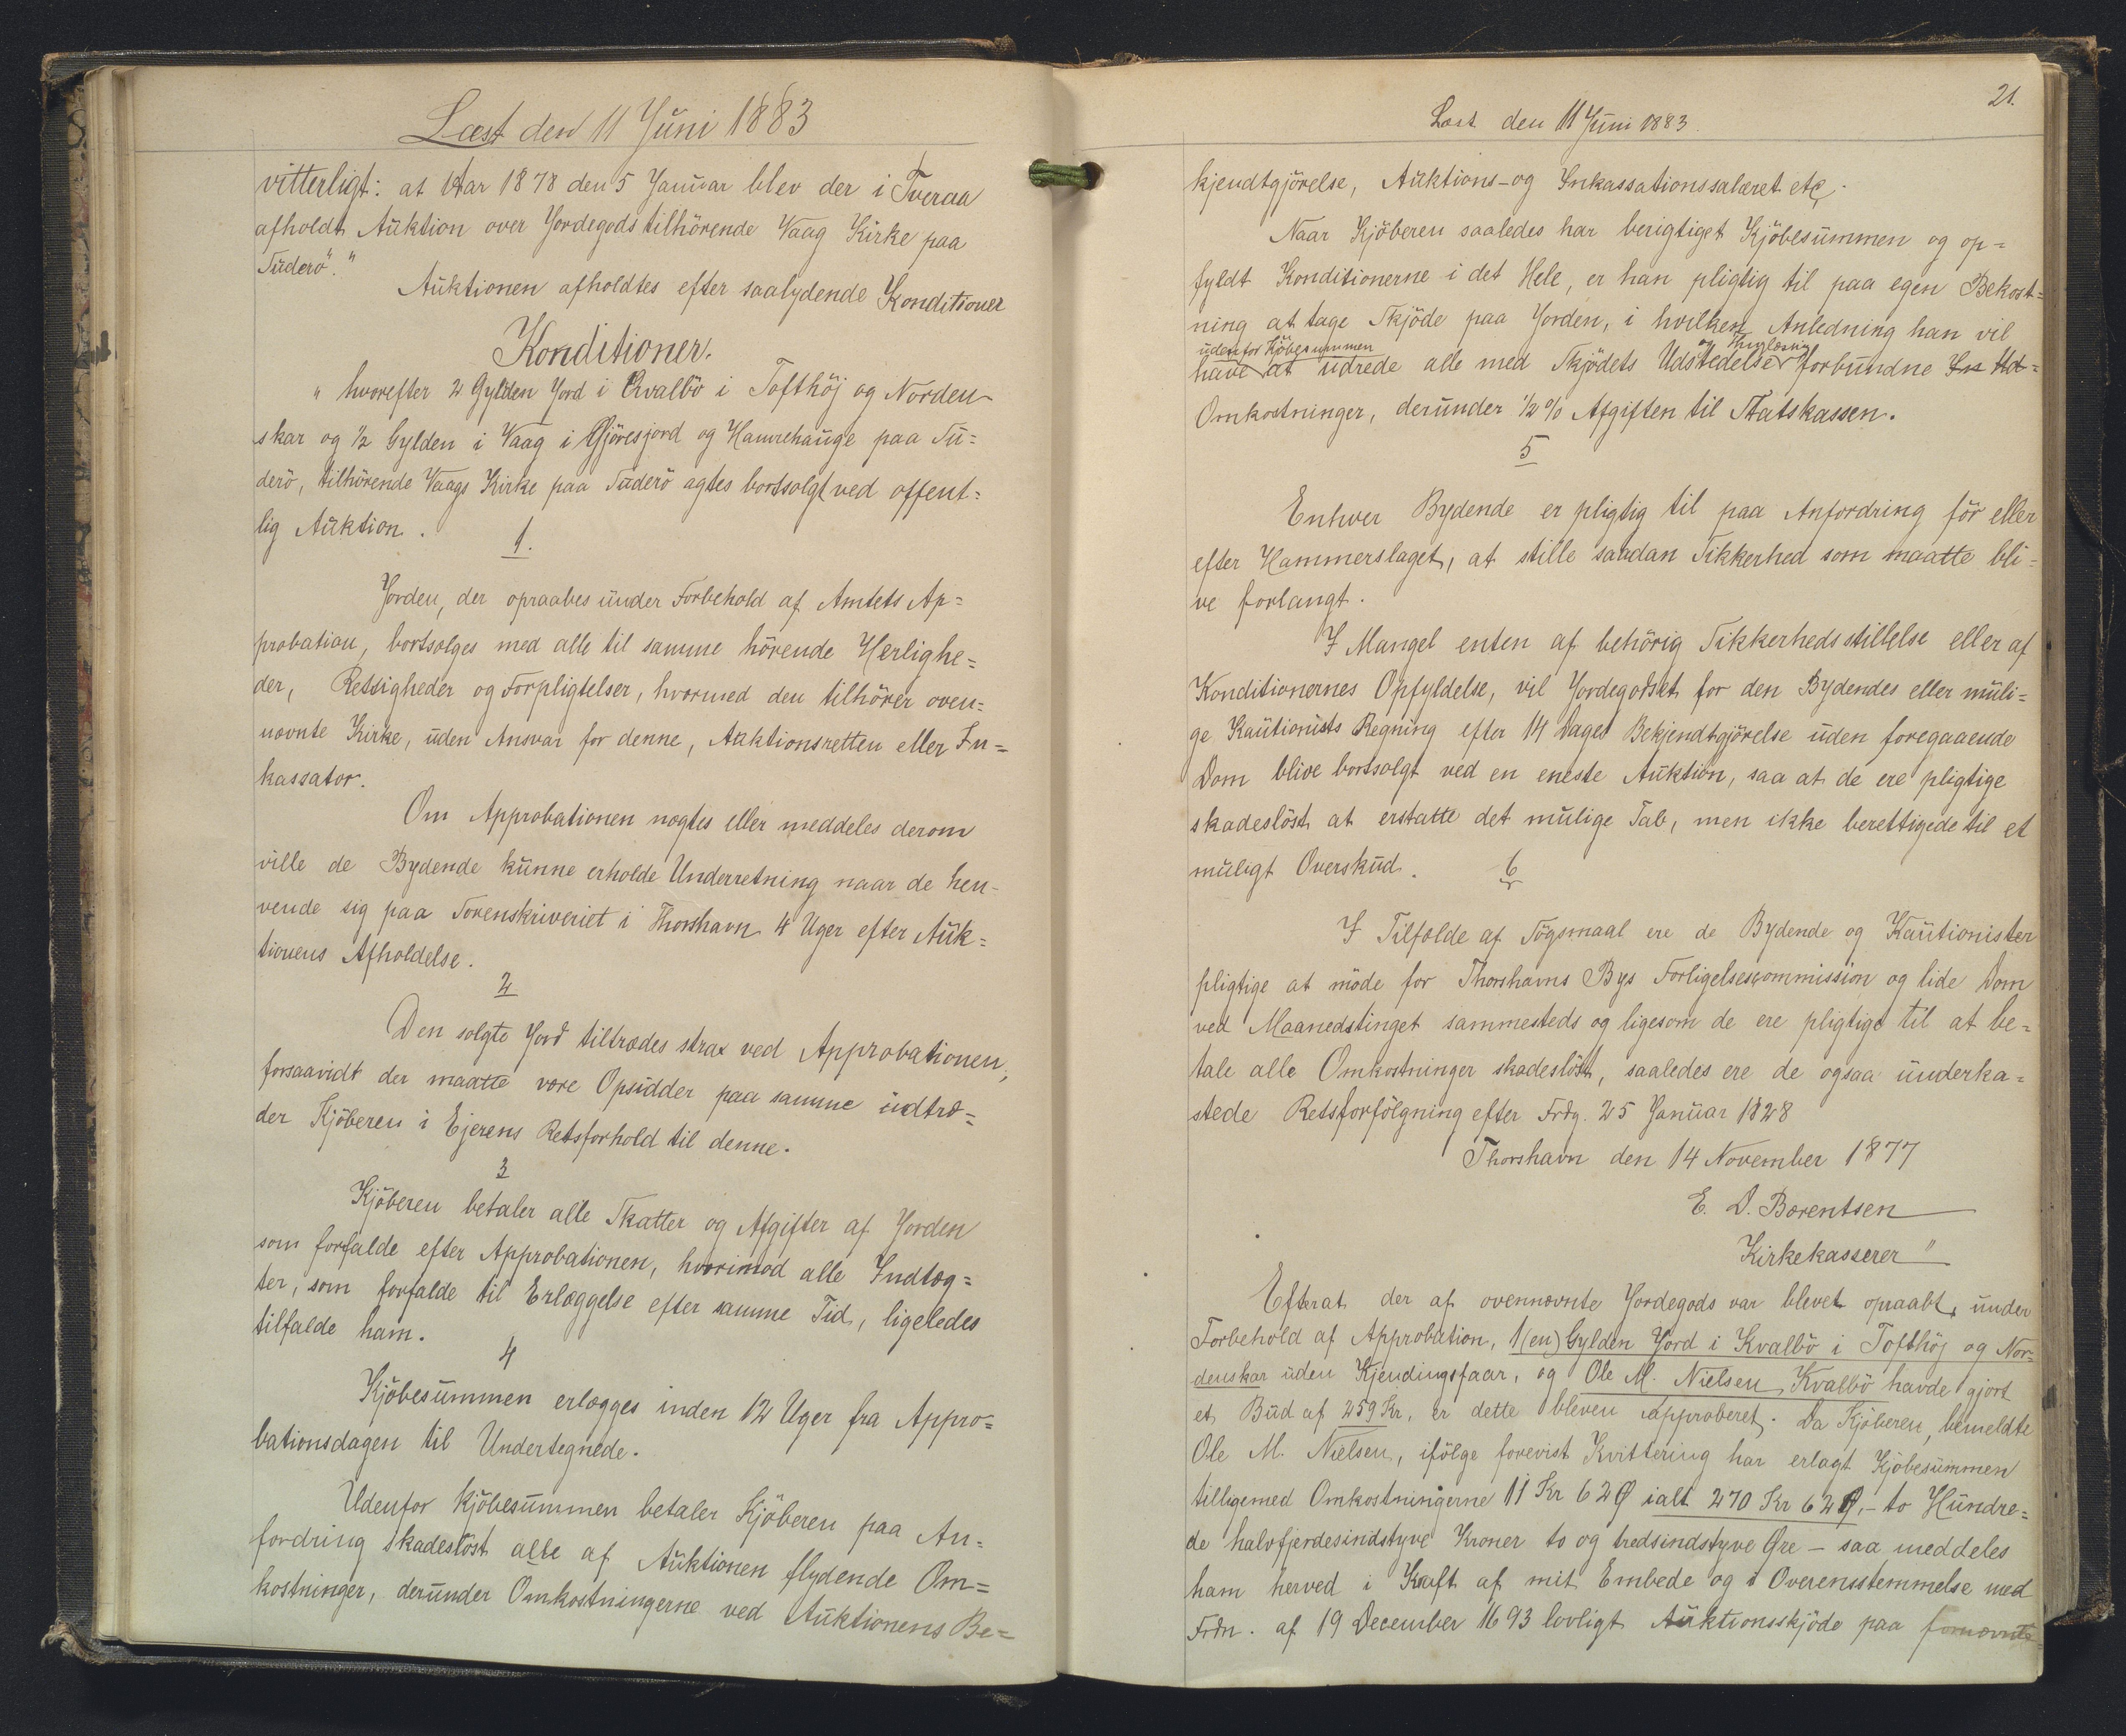 Læst den 11 Juni 1883
vitterligt: at Aar 1878 den 5 Januar blev der i Tveraa
afholdt Auktion over Jordegods tilhörende Vaag Kirke paa
Suderö."
Auktionen afholdtes efter saalydende Konditioner
Konditioner.
" hvorefter 2 Gylden Jord i Qvalbö i Tofthöj og Norden-
skar og 1/2 Gylden i Vaag i Gjöresjord og Hamrehauge paa Su=
derö, tilhörende Vaags Kirke paa Suderö agtes bortsolgt ved offent=
lig Auktion.
1.
Jorden, der opraabes under Forbehold af Amtets Ap=
probation, bortsælges med alle til samme hörende Herlighe=
der, Rettigheder og Forpligtelser, hvormed den tilhörer oven=
nævnte Kirke, uden Ansvar for denne, Auktionsretten eller In=
kassator.
Om Approbationen nægtes eller meddeles derom
ville de Bydende kunne erholde Underretning naar de hen-
vende sig paa Sorenskriveriet i Thorshavn 4 Uger efter Auk=
tionens Afholdelse.
2
Den solgte Jord tiltrædes strax ved Approbationen,
forsaavidt der maatte være Opsidder paa samme indtræ=
der Kjöberen i Ejerens Retsforhold til denne.
3
Kjöberen betaler alle Skatter og Afgifter af Jorden
som forfalde efter Approbationen, hvorimod alle Indtæg=
ter, som forfalde til Erlæggelse efter samme Tid, ligeledes
tilfalde ham.
4
Kjöbesummen erlægges inden 12 Uger fra Appro=
bationsdagen til Undertegnede.
Udenfor Kjöbesummen betaler Kjöberen paa An=
fordring skadeslöst alle af Auktionen flydende Om=
kostninger, derunder Omkostningerne ved Auktionens Be=
21.
Læst den 11 Juni 1883.
kjendtgjörelse, Auktions- og Inkassationssalæret etc.
Naar Kjöberen saaledes har berigtiget Kjöbesummen og op=
fyldt Konditionerne i det Hele, er han pligtig til paa egen Bekost=
ning at tage Skjöde paa Jorden, i hvilken Anledning han vil
udenfor Kjöbesummen og Thinglæsning
have at udrede alle med Skjödets Udstedelse forbundne In Ud=
Omkostninger, derunder 1/2 % Afgiften til Statskassen.
5
Enhver Bydende er pligtig til paa Anfordring för eller
efter Hammerslaget, at stille saadan Sikkerhed som maatte bli=
ve forlangt.
I Mangel enten af behörig Sikkerhedsstillelse eller af
Konditionernes Opfyldelse, vil Jordegodset for den Bydendes eller muli=
ge Kautionists Regning efter 14 Dages Bekjendtgjörelse uden foregaaende
Dom blive bortsolgt ved en eneste Auktion, saa at de ere pligtige
skadeslöst at erstatte det mulige Tab, men ikke berettigede til et
muligt Overskud.
6
I Tilfælde af Sögsmaal ere de Bydende og Kautionister
pligtige at möde for Thorshavns Bys Forligelsescommission og lide Dom
ved Maanedstinget sammesteds og ligesom de ere pligtige til at be=
tale alle Omkostninger skadeslöst, saaledes ere de ogsaa underka=
stede Retsforfölgning efter Frdg. 25 Januar 1828
Thorshavn den 14 November 1877
E. D. Bærentsen
Kirkekasserer "
Efterat der af ovennævnte Jordegods var blevet opraabt, under
Forbehold af Approbation, 1 (en) Gylden Jord i Kvalbö i Tofthöj og Nor=
denskar uden Kjendingsfaar, og Ole M. Nielsen Kvalbö havde gjort
et Bud af 259 Kr, er dette bleven approberet. Da Kjöberen, bemeldte
Ole M. Nielsen, ifölge forevist Kvittering har erlagt Kjöbesummen
tilligemed Omkostningerne 11 Kr 62 Ø ialt 270 Kr 62 Ø, - to Hundre=
de halvfjerdesindstyve Kroner to og tredsindstyve Øre - saa meddeles
ham herved i Kraft af mit Embede og i Overensstemmelse med
Frdn. af 19 December 1693 lovligt Auktionsskjöde paa fornævnte